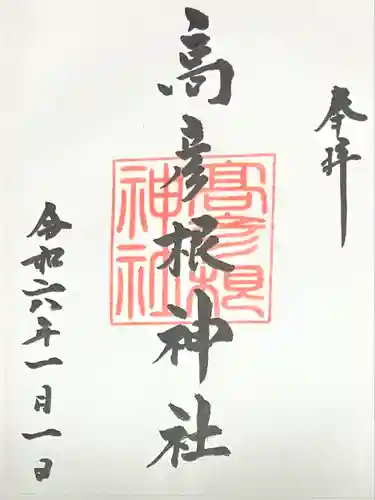 奉拝
高彦根神社
高彦根
神社
令和六年一月一日